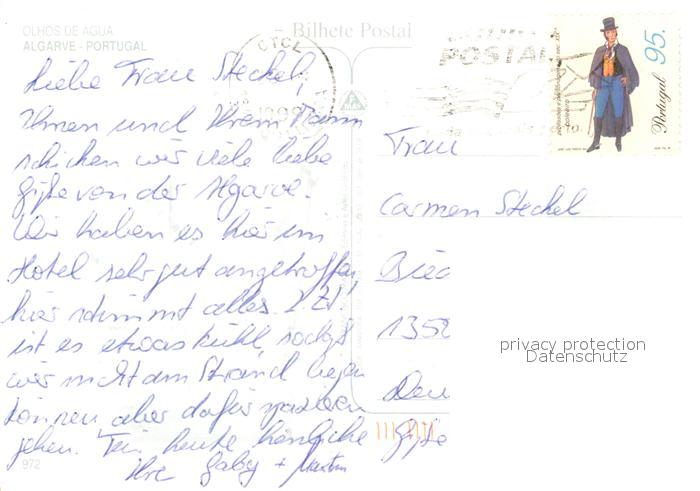 OLHOS DE AGUA
ALGARVE - PORTUGAL
Bilhete Postal
CTCL
POSTAL
Portugal 95.
Liebe Frau Steckel,
Ihnen und Ihrem Mann
schicken wir viele liebe
Grüße von der Algarve.
Wir haben es hier im
Hotel sehr gut angetroffen,
hier stimmt alles. z. Zt.
ist es etwas kühl, sodaß
wir nicht am Strand liegen
können, aber dafür spazieren
gehen. Für heute herzliche Grüße
Ihre Gaby + Martin
Frau
Carmen Steckel
1352
972
privacy protection
Datenschutz